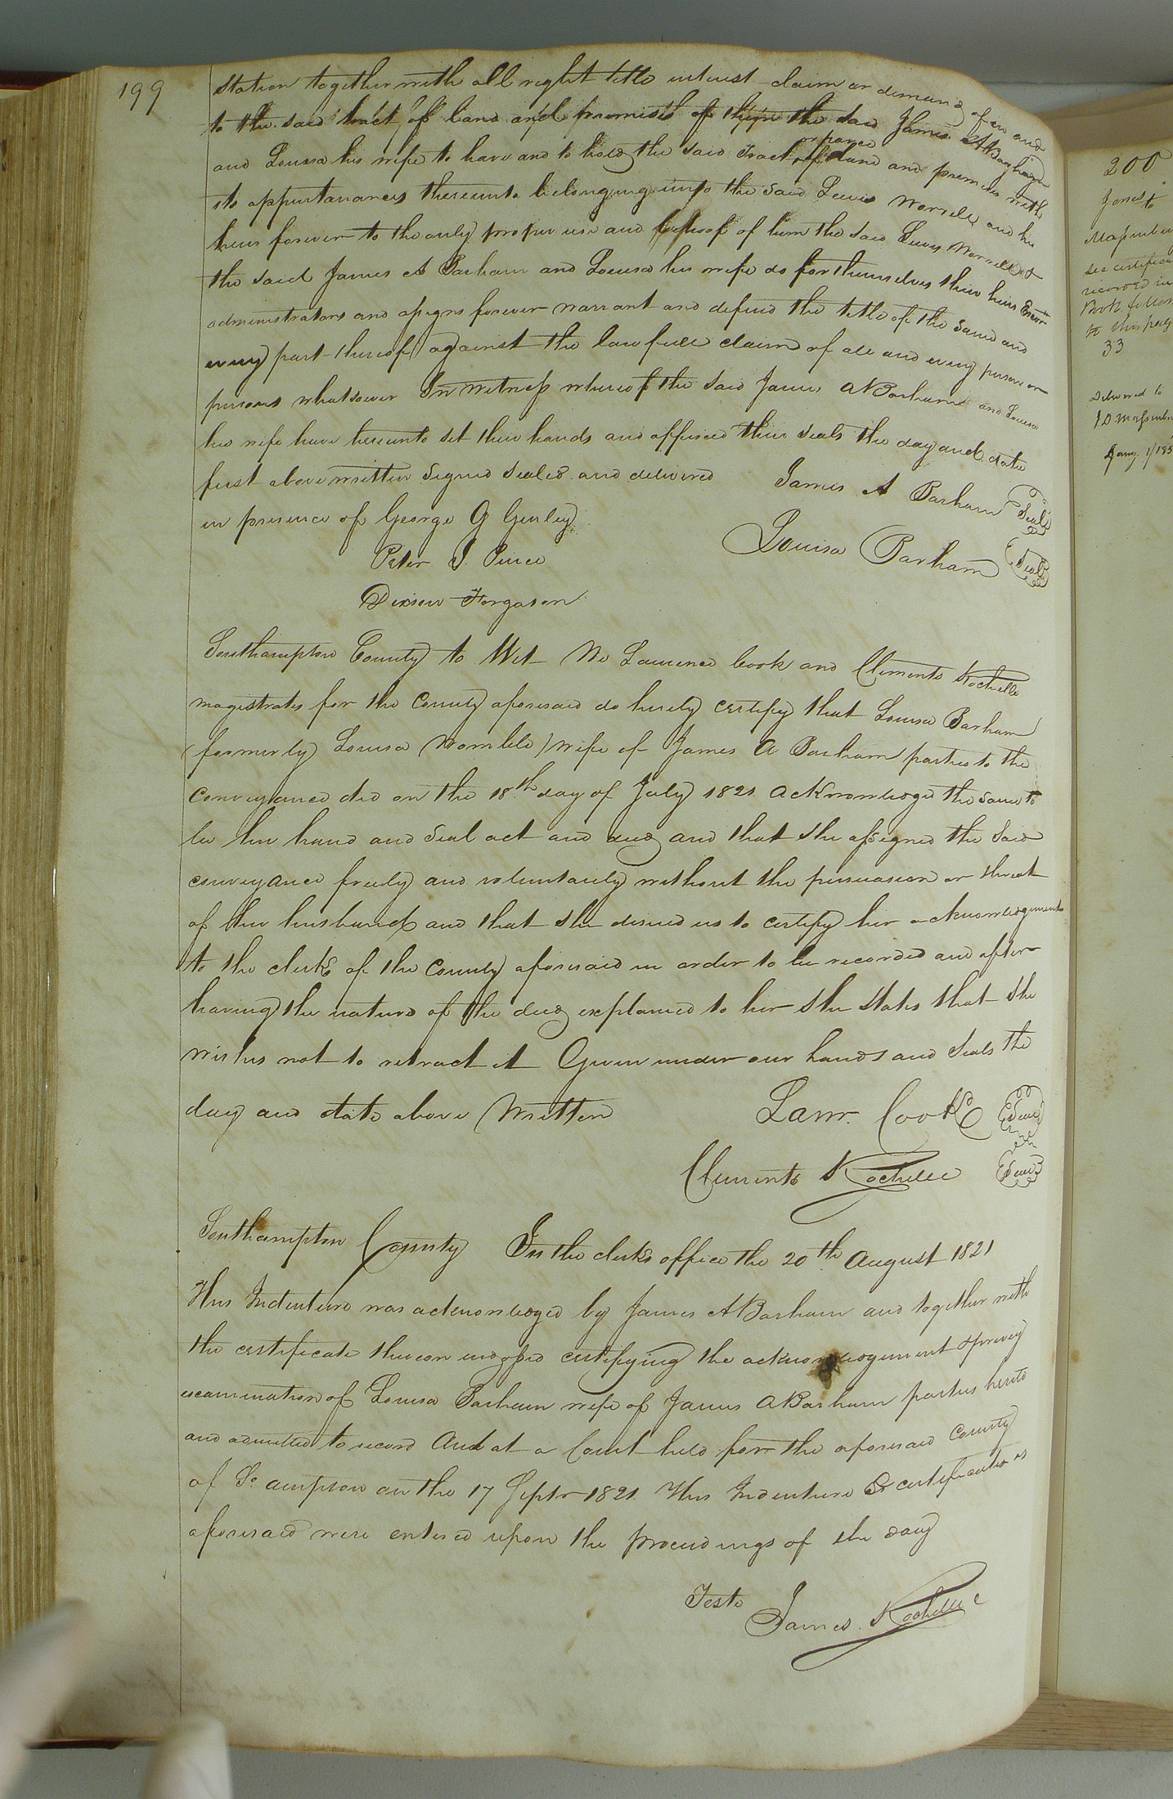 199
station together with all right title interest claim or demand of in and
to the said tract of land and premises of the said James A Barham
and Louisa his wife to have and to hold the said tract of land and premises with
or parcel
its appurtanances thereunto belonging unto the said Lewis Worrell and his
heirs forever to the only proper use and behoof of him the said Lewis Worrell &
the said James A Barham and Louisa his wife do for themselves their heirs Exors
administrators and assigns forever warrant and defend the title of the same and
every part thereof against the lawfull claim of all and every person or
persons whatsoever In witness whereof the said James A Barham and Louisa
his wife have hereunto set their hands and affixed their seals the day and date
first above written Signed Sealed and delivered James A Barham Seal
in presence of George G Gurley
Louisa Barham Seal
Peter J. Pince
Dixion Forgason
Southampton County to Wit We Lawrence Cook and Clements Rochelle
magistrates for the County aforesaid do hereby certify that Louisa Barham
(formerly Louisa Womble) wife of James A Barham parties to the
conveyance did on the 18th day of July 1821 acknowledge the same to
be her hand and seal act and deed and that she assigned the said
conveyance freely and voluntarily without the persuasion or threat
of her husband and that she desired us to certify her acknowledgement
to the clerk of the County aforesaid in order to be recorded and after
having the nature of the deed explained to her she states that she
wishes not to retract it Given under our hands and seals the
day and date above Written Lawr. Cook Seal
Clements Rochelle Seal
Southampton County In the clerks office the 20th August 1821
This Indenture was acknowledged by James A Barham and together with
the certificate thereon endorsed certifying the acknowledgement & privy
examination of Louisa Barham wife of James A Barham parties hereto
and admitted to record And at a Court held for the aforesaid County
of So ampton on the 17 Septr 1821 This Indenture & certificate as
aforesaid were entered upon the proceedings of the day
Teste James Rochelle
200
Jones
to
see certificate
record in
Book follow
to this page
33
Delivered to